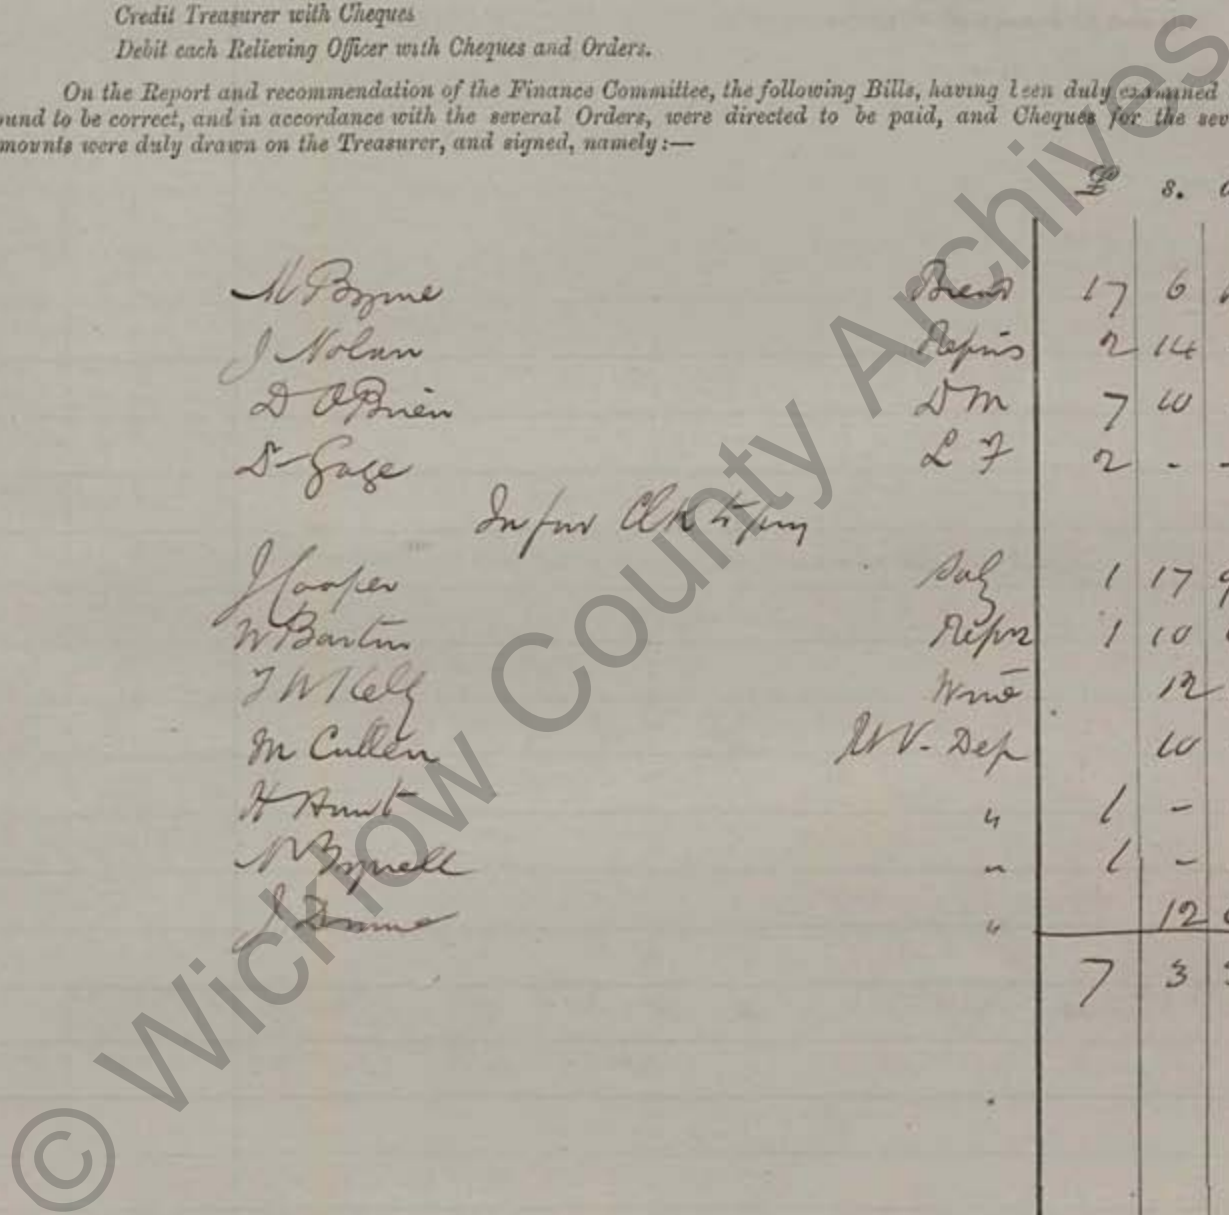 Credit Treasurer with Cheques
Debit each Relieving Officer with Cheques and Orders.
On the Report and recommendation of the Finance Committee, the following Bills, having been duly examined
und to be correct, and in accordance with the several Orders, were directed to be paid, and Cheques for the sev
mounts were duly drawn on the Treasurer, and signed, namely:—
£ s.
M Byrne Bread 17 6
J Nolan Repairs 2 14
D O'Brien D M 7 10
Dr Gage L F 2 - -
J Cooper Saly 1 17 9
W Barton Repn 1 10
T W Kelly Wine 12
M Cullen Dep 10
H Hunt " 1 -
" 1 -
J " 12
7 3
© Wicklow County Archives